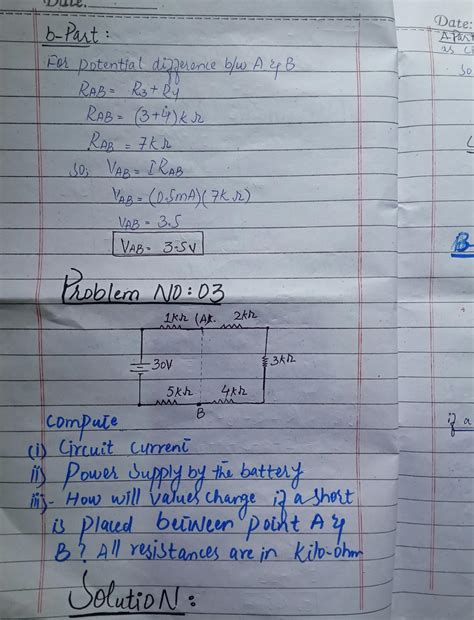 Date:
b-Part:
For potential difference b/w A & B
RAB = R3 + R4
RAB = (3+4)kΩ
RAB = 7kΩ
So, VAB = IRAB
VAB = (0.5mA)(7kΩ)
VAB = 3.5
VAB = 3.5V
Problem NO: 03
1kΩ (A). 2kΩ
30V
3kΩ
5kΩ 4kΩ
B
Compute
(i) Circuit current
ii) Power Supply by the battery
iii)- How will values change if a short
is placed between point A &
B? All resistances are in kilo-ohm
Solution:
Date:
A Part
as
So
B-
if a